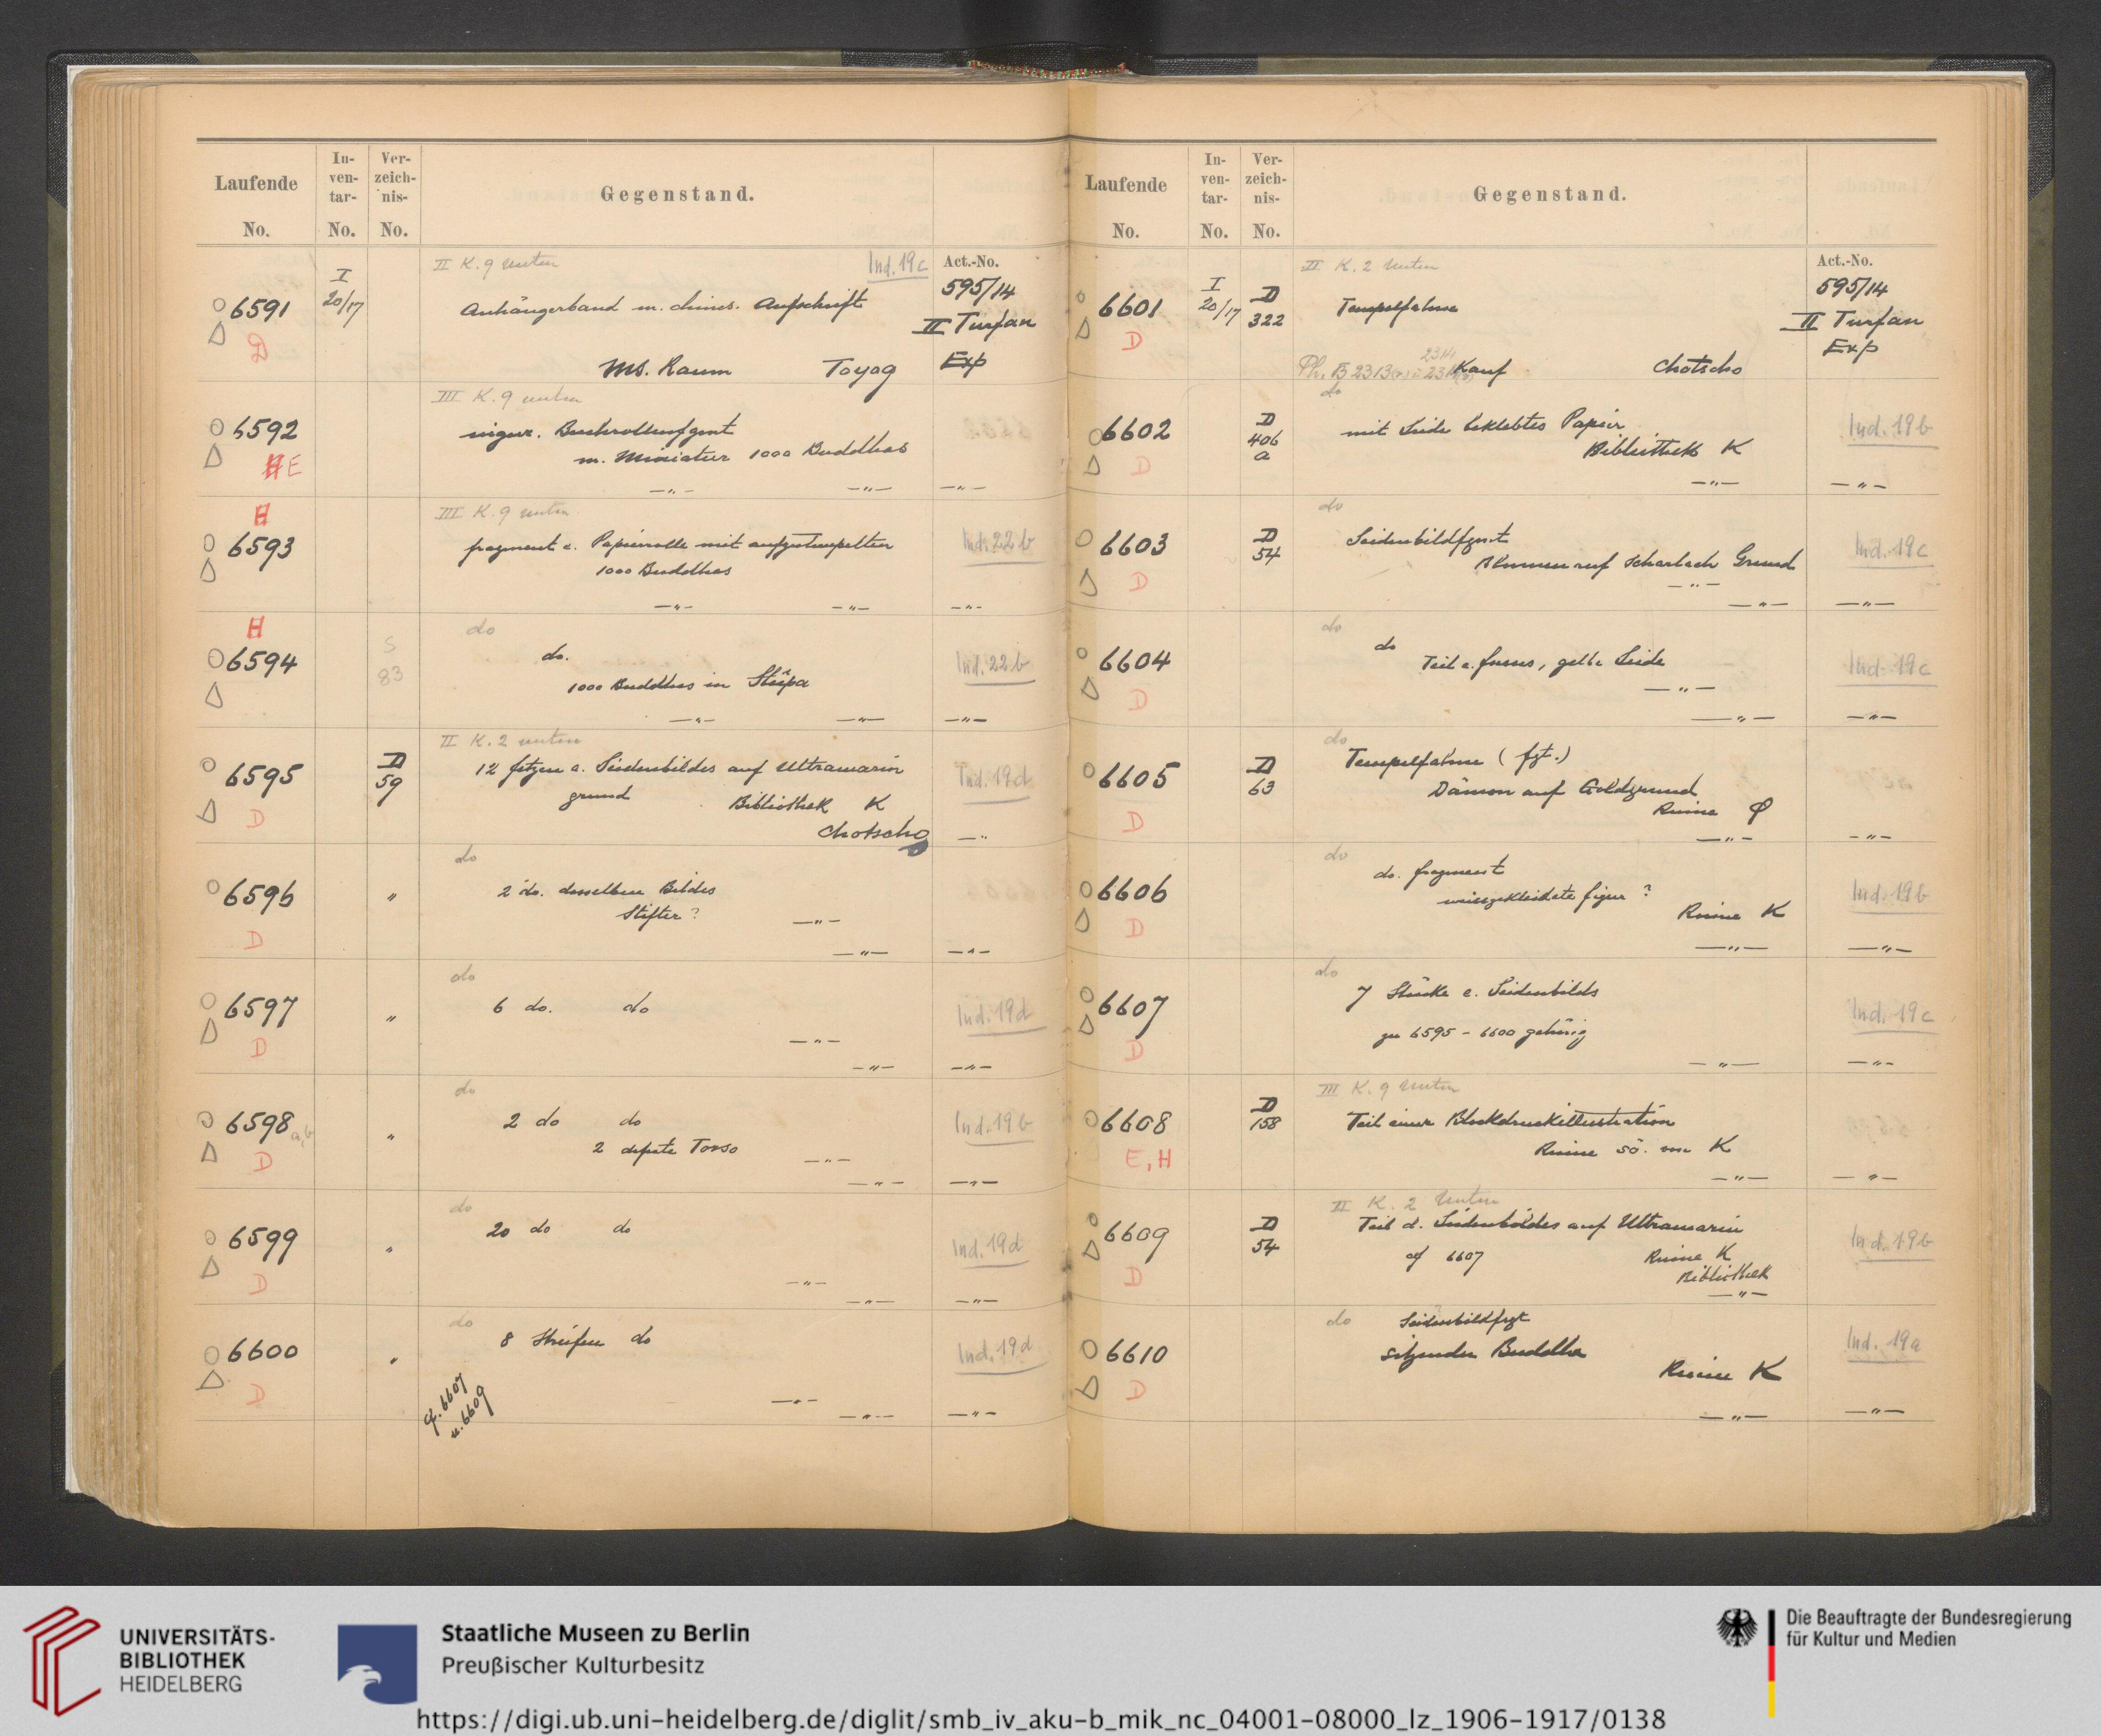 Laufende No.
In-ven-tar- No.
Ver-zeich-nis- No.
Gegenstand.
II K. 9 unten
Ind. 19c
Act.-No.
595/14
6591
I 20/17
Anhängerband m. chines. Aufschrift
II Turfan
D
MS. Raum Toyog
Exp
III K. 9 unten
6592
uigur. Buchrollenfgmt
m. Miniatur 1000 Buddhas
E
—„— —„— —„—
H
III K. 9 unten
6593
fragment e. Papierrolle mit aufgestempelten
Ind. 22b
1000 Buddhas
—„— —„— —„—
H
do
6594
S 83
do.
Ind. 22b
1000 Buddhas in Stûpa
—„— —„— —„—
II K. 2 unten
6595
D 59
12 fetzen e. Seidenbildes auf Ultramarin
Ind. 19d
grund Bibliothek K
D
Chotscho —„
do
6596
„
2 do. desselben Bildes
Stifter? —„—
D
—„— —„—
do
6597
„
6 do. do
Ind. 19d
—„—
D
—„— —„—
do
6598 a,b
„
2 do do
Ind. 19b
2 Torso —„—
D
—„— —„—
do
6599
„
20 do do
Ind. 19d
—„—
D
—„— —„—
do
6600
„
8 Streifen do
Ind. 19d
D
cf. 6607
u. 6609
—„—
—„— —„—
Laufende No.
In-ven-tar- No.
Ver-zeich-nis- No.
Gegenstand.
II K. 2 unten
Act.-No.
595/14
6601
I 20/17
D 322
Tempelfahne
II Turfan
Exp
D
Ph. B 2313
Kauf Chotscho
do
6602
D 406 a
mit Seide beklebtes Papier
Ind. 19b
Bibliothek K
D
—„— —„—
do
6603
D 54
Seidenbildfgmt
Ind. 19c
Blumen auf Scharlach Grund
D
—„—
—„— —„—
do
6604
do
Teil e. Fusses, gelbe Seide
Ind. 19c
D
—„—
—„— —„—
do
6605
D 63
Tempelfahne (fgt.)
Dämon auf Goldgrund
Ruine φ
D
—„— —„—
do
6606
do. fragment
Ind. 19b
weissgekleidete figur?
Ruine K
D
—„— —„—
do
6607
7 Stücke e. Seidenbilds
Ind. 19c
zu 6595 - 6600 gehörig
D
—„— —„—
III K. 9 unten
6608
D 158
Teil einer Blockdruckillustration
E, H
Ruine sö. von K
—„— —„—
II K. 2 unten
6609
D 54
Teil d. Seidenbildes auf Ultramarin
Ind. 19b
cf 6607 Ruine K
Bibliothek
D
—„—
do
Seidenbildfrgt
6610
sitzender Buddha
Ind. 19a
Ruine K
D
—„— —„—
UNIVERSITÄTS-
BIBLIOTHEK
HEIDELBERG
Staatliche Museen zu Berlin
Preußischer Kulturbesitz
Die Beauftragte der Bundesregierung
für Kultur und Medien
https://digi.ub.uni-heidelberg.de/diglit/smb_iv_aku-b_mik_nc_04001-08000_lz_1906-1917/0138